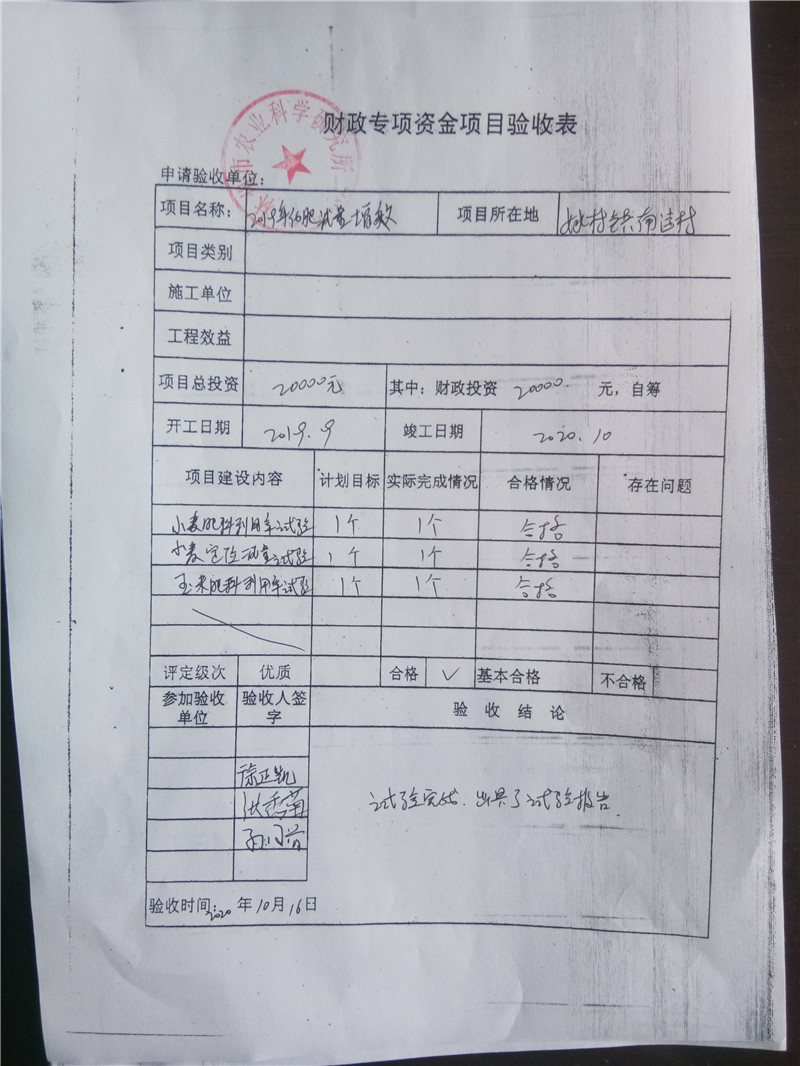 市农业科学研究所
财政专项资金项目验收表
申请验收单位:
项目名称: 2019年化肥减量增效 项目所在地 姚村镇南
项目类别
施工单位
工程效益
项目总投资 20000元 其中: 财政投资 20000. 元, 自筹
开工日期 2019.9 竣工日期 2020.10
项目建设内容 计划目标 实际完成情况 合格情况 存在问题
小麦肥料利用率试验 1个 1个 合格
小麦 试验 1个 1个 合格
玉米肥料利用率试验 1个 1个 合格
评定级次 优质 合格 ✓ 基本合格 不合格
参加验收单位 验收人签字 验收结论
徐正凯
试验完成. 出具了试验报告.
验收时间: 2020年10月16日